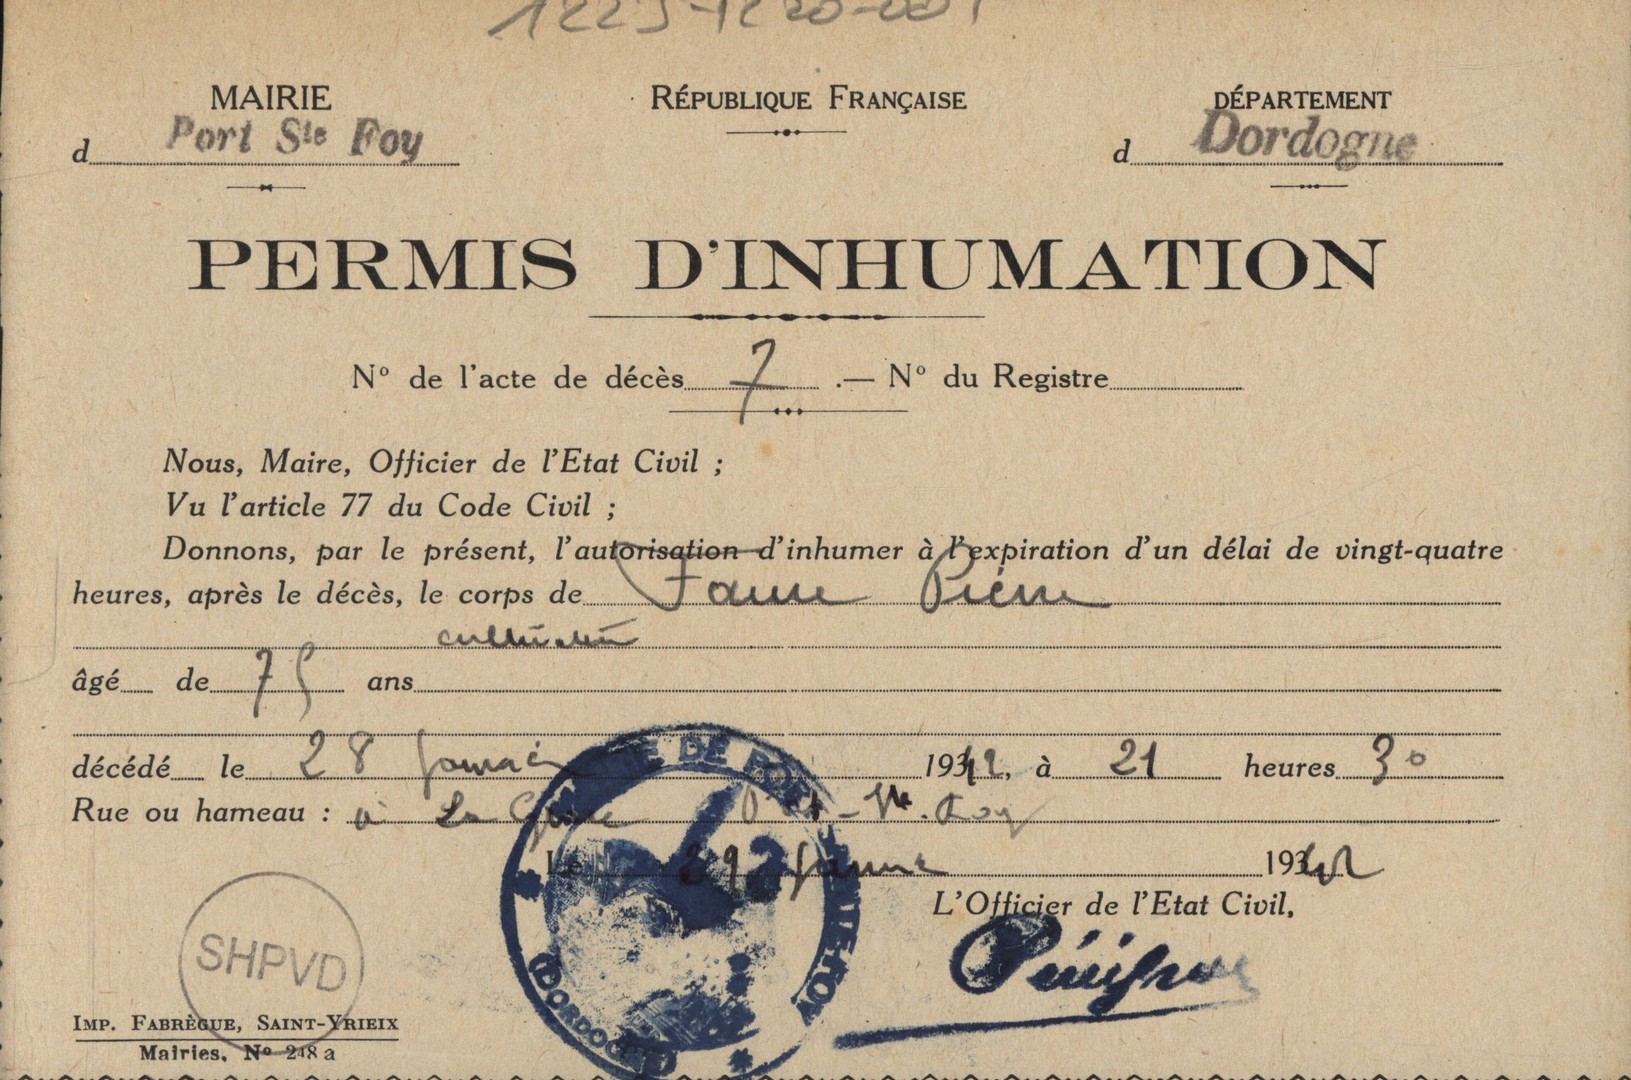 MAIRIE
d Port Ste Foy
RÉPUBLIQUE FRANÇAISE
DÉPARTEMENT
d Dordogne
PERMIS D'INHUMATION
N° de l'acte de décès 7 .— N° du Registre
Nous, Maire, Officier de l'Etat Civil ;
Vu l'article 77 du Code Civil ;
Donnons, par le présent, l'autorisation d'inhumer à l'expiration d'un délai de vingt-quatre
heures, après le décès, le corps de Faure Pierre
cultivateur
âgé de 75 ans
décédé le 28 janvier 1942, à 21 heures 30
Rue ou hameau : à La Port-Ste-Foy
Le 29 janvier 1942
L'Officier de l'Etat Civil,
MAIRIE DE PORT SAINTE-FOY
(DORDOGNE)
SHPVD
IMP. FABRÈGUE, SAINT-YRIEIX
Mairies, N° 248 a